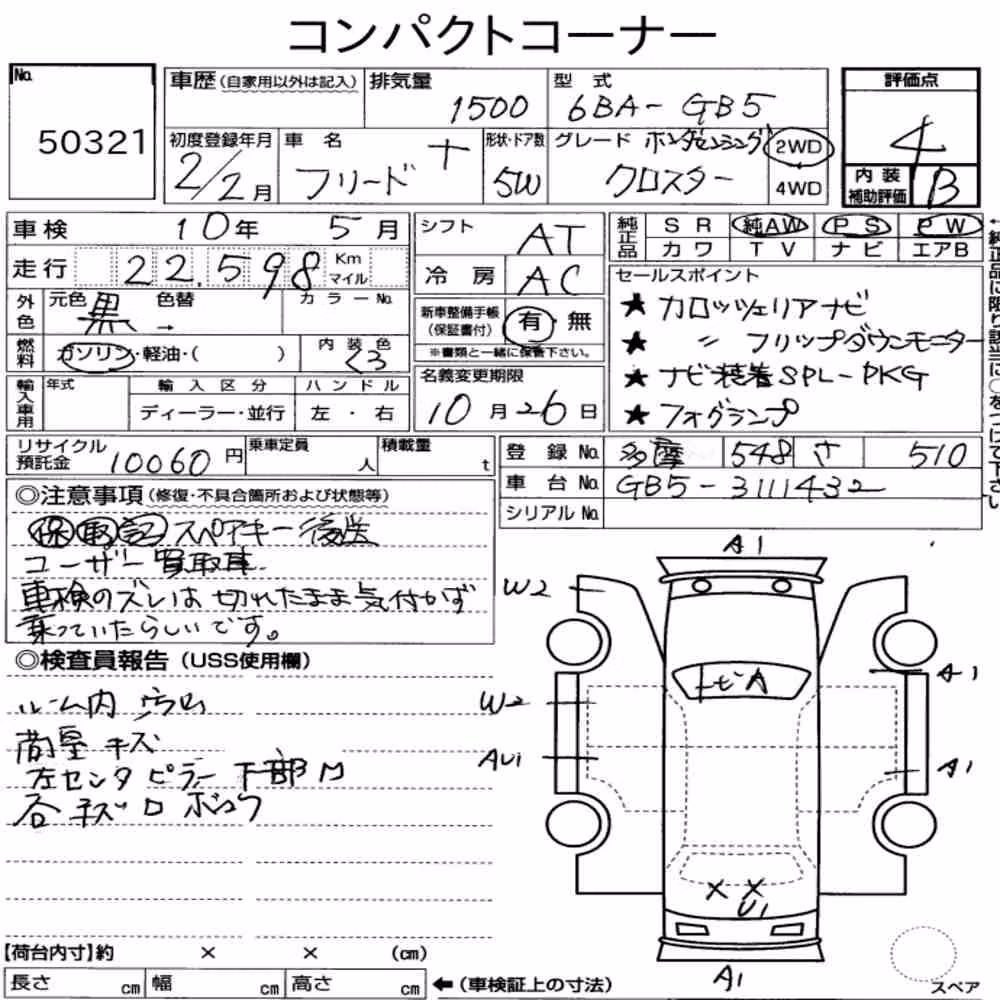 コンパクトコーナー
No.
50321
車歴(自家用以外は記入)
排気量
1500
型式
6BA-GB5
評価点
4
内装補助評価
B
初度登録年月
2/2月
車名
フリード+
形状・ドア数
5W
グレード
ホンダセンシング
クロスター
2WD
4WD
車検
10年 5月
走行
22,598
Km
マイル
外色
元色
黒
色替
→
カラーNo.
燃料
ガソリン・軽油・( )
内装色
クロ
輸入車用
年式
輸入区分
ディーラー・並行
ハンドル
左・右
シフト
AT
冷房
AC
新車整備手帳(保証書付)
有・無
※書類と一緒に保管下さい。
名義変更期限
10月26日
純正品
SR 純AW PS PW
カワ TV ナビ エアB
セールスポイント
★ カロッツェリアナビ
★ 〃 フリップダウンモニター
★ ナビ装着SPL-PKG
★ フォグランプ
←純正品に限り該当に○をつけて下さい
リサイクル預託金
10060円
乗車定員
人
積載量
t
登録No.
多摩 548 さ 510
車台No.
GB5-3111432
シリアルNo.
◎注意事項(修復・不具合箇所および状態等)
保 取 記 スペアキー後送
ユーザー買取車
車検のズレは切れたまま気付かず
乗っていたらしいです。
◎検査員報告(USS使用欄)
ルーム内
キズ
左センタピラー下部
A1
W2
W2
AU1
トビA
A1
A1
× ×
U1
A1
スペア
【荷台内寸】約 × × (cm)
長さ cm 幅 cm 高さ cm
←(車検証上の寸法)